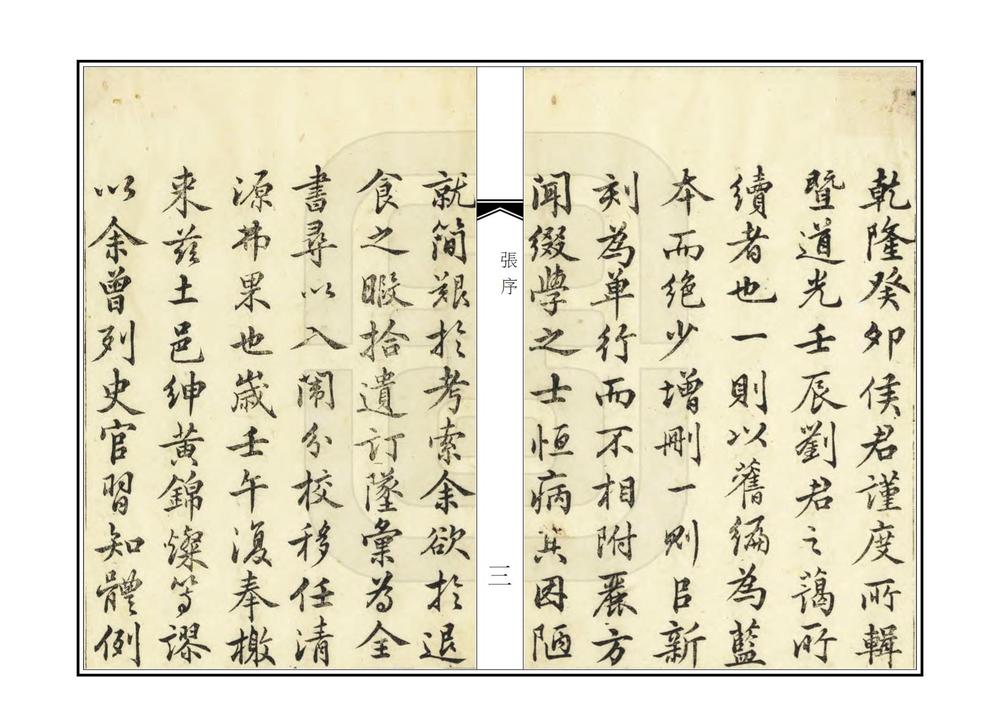 乾隆癸卯侯君謹度所輯
暨道光壬辰劉君之藹所
續者也一則以舊編為藍
本而絶少增刪一則另新
刻為單行而不相附麗方
聞綴學之士恒病其因陋
張序
三
就簡艱於考索余欲於退
食之暇拾遺訂墜彙為全
書尋以入闈分校移任清
源弗果也歲壬午復奉檄
来茲土邑紳黃錦燦等謬
以余曾列史官習知體例